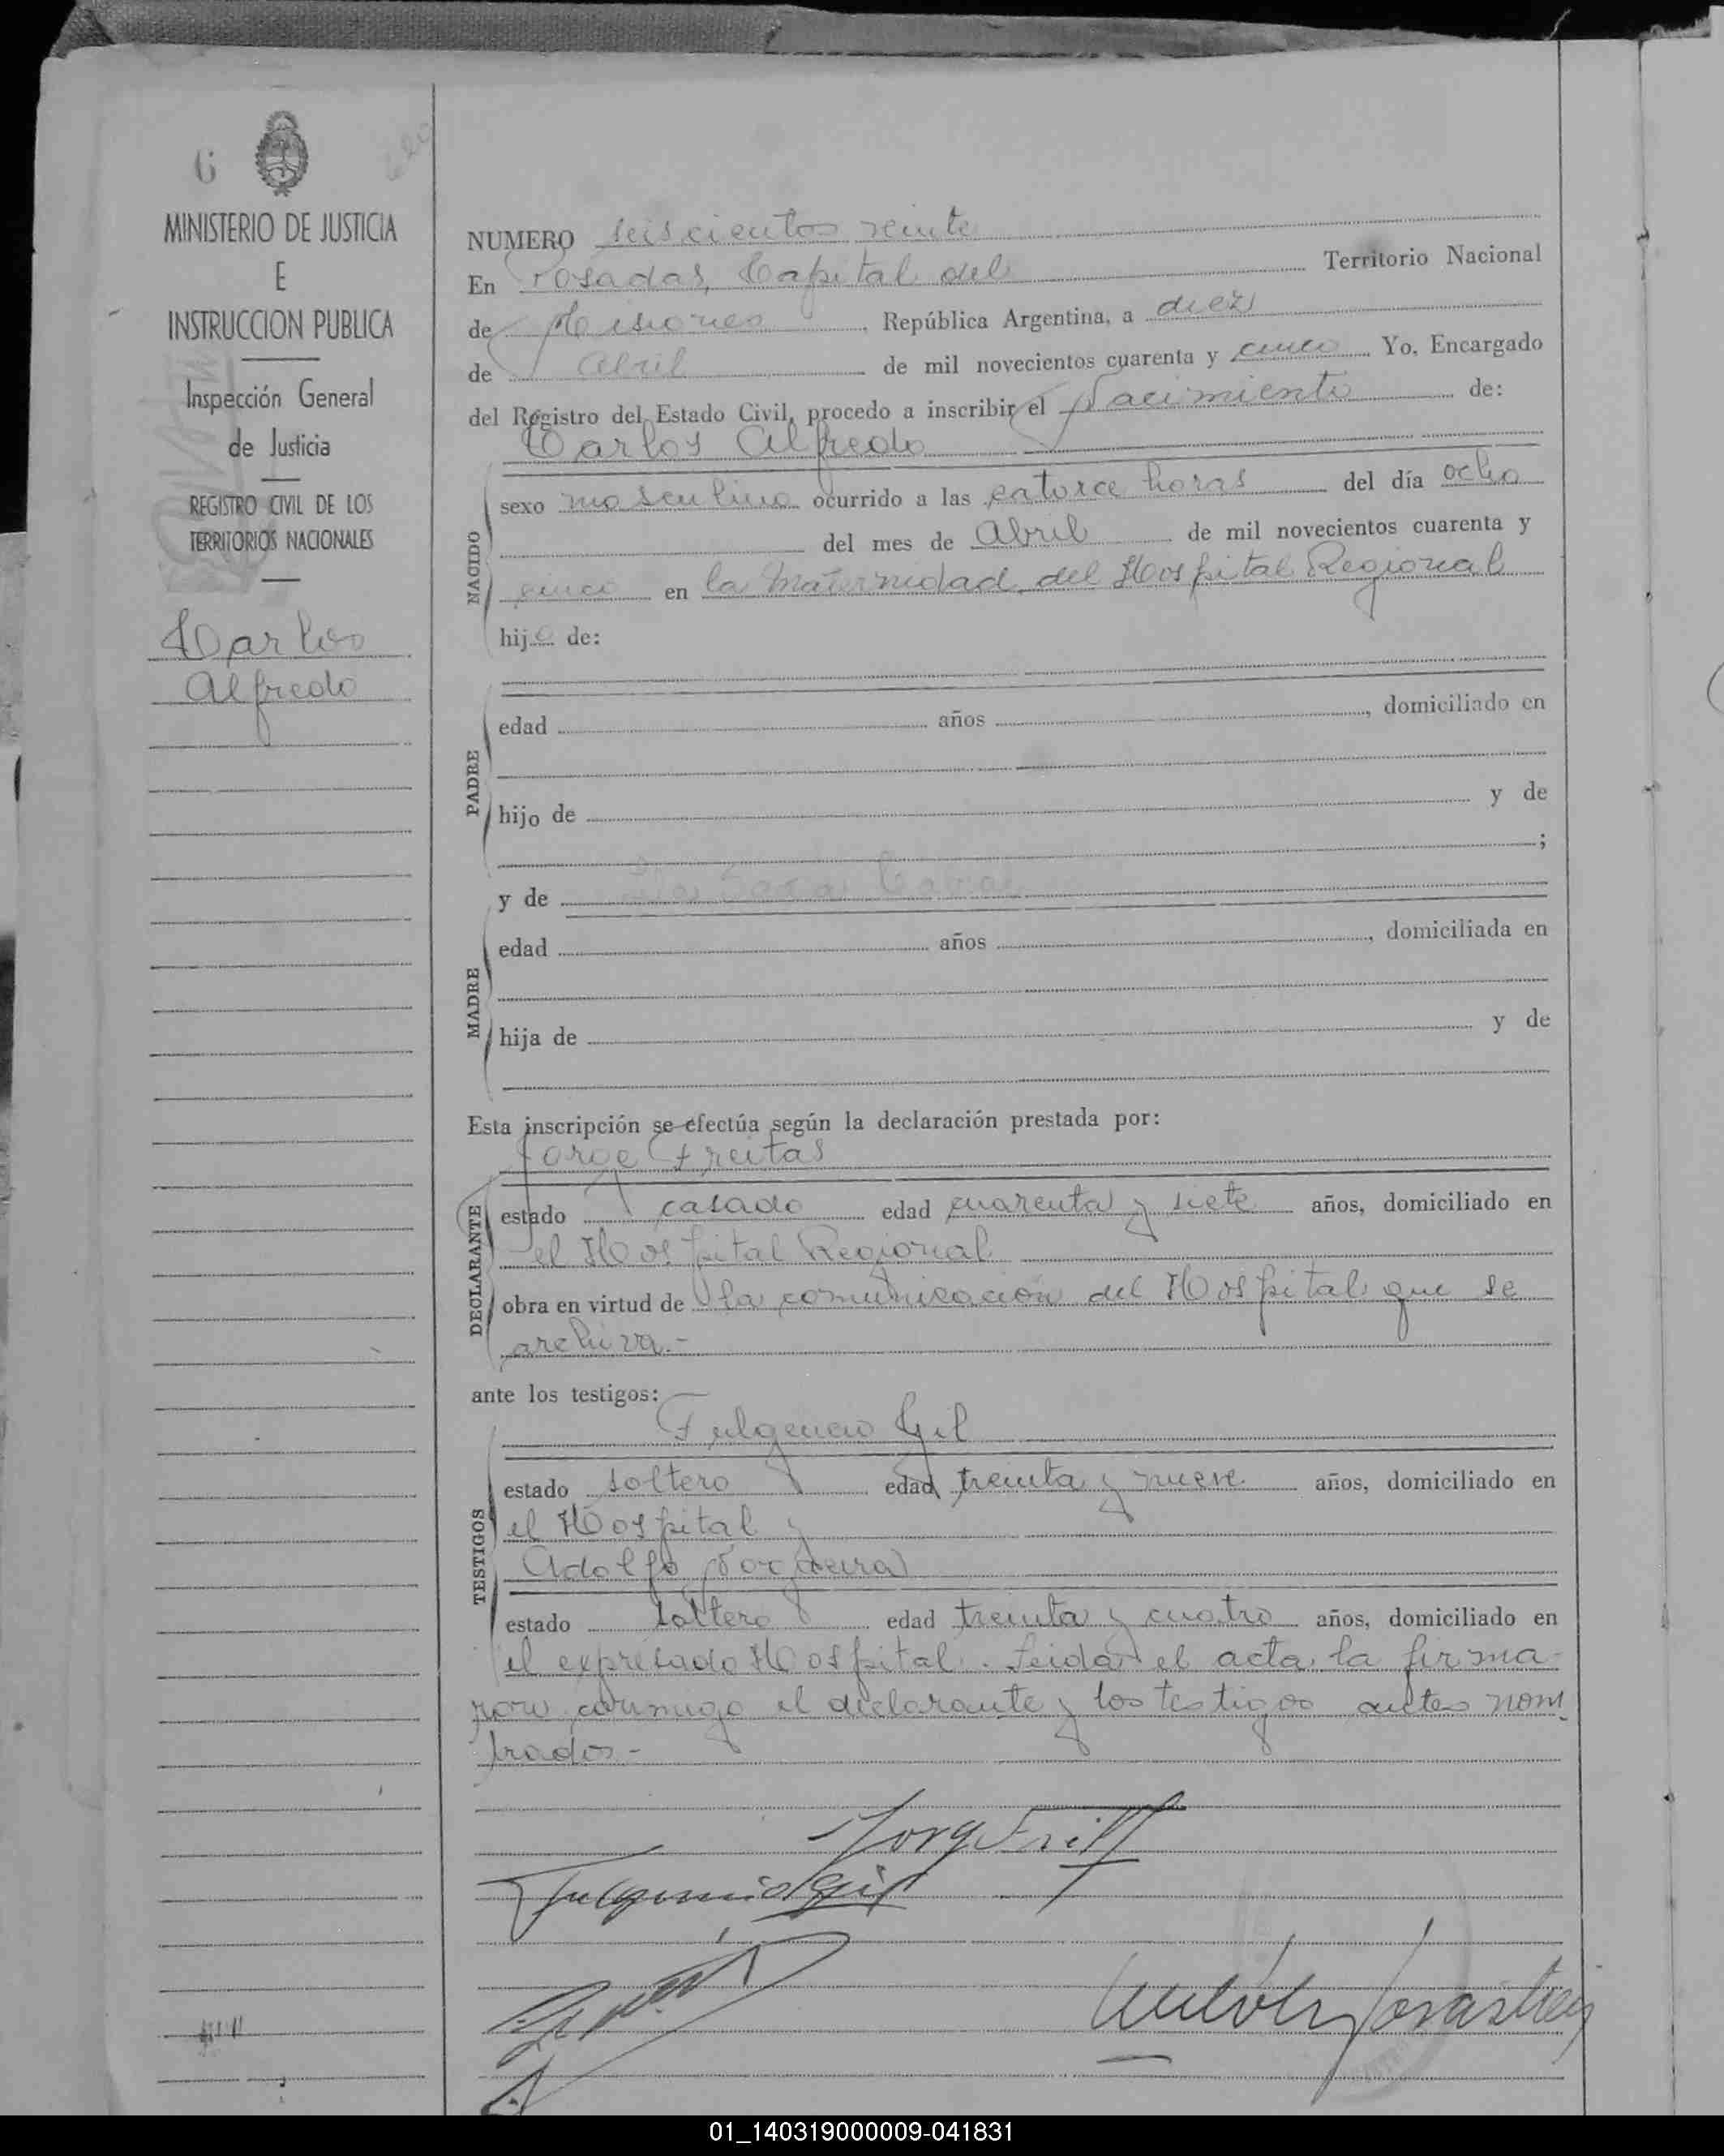 6
MINISTERIO DE JUSTICIA
E
INSTRUCCION PUBLICA
Inspección General
de Justicia
REGISTRO CIVIL DE LOS
TERRITORIOS NACIONALES
Carlos
Alfredo
NUMERO seiscientos veinte
En Posadas, Capital del Territorio Nacional
de Misiones, República Argentina, a diez
de Abril de mil novecientos cuarenta y cinco Yo, Encargado
del Registro del Estado Civil, procedo a inscribir el Nacimiento de:
Carlos Alfredo
NACIDO
sexo masculino ocurrido a las catorce horas del día ocho
del mes de Abril de mil novecientos cuarenta y
cinco en la Maternidad del Hospital Regional
hijo de:
PADRE
edad años , domiciliado en
hijo de y de
;
y de
MADRE
edad años , domiciliada en
hija de y de
Esta inscripción se efectúa según la declaración prestada por:
Jorge Freitas
DECLARANTE
estado casado edad cuarenta y siete años, domiciliado en
el Hospital Regional
obra en virtud de la comunicación del Hospital que se
archiva.-
ante los testigos:
Fulgencio Gil
TESTIGOS
estado soltero edad treinta y nueve años, domiciliado en
el Hospital y
Adolfo
estado soltero edad treinta y cuatro años, domiciliado en
el expresado Hospital. Leida el acta la firma
ron conmigo el declarante y los testigos antes nom
brados.-
Fulgencio Gil
01_140319000009-041831